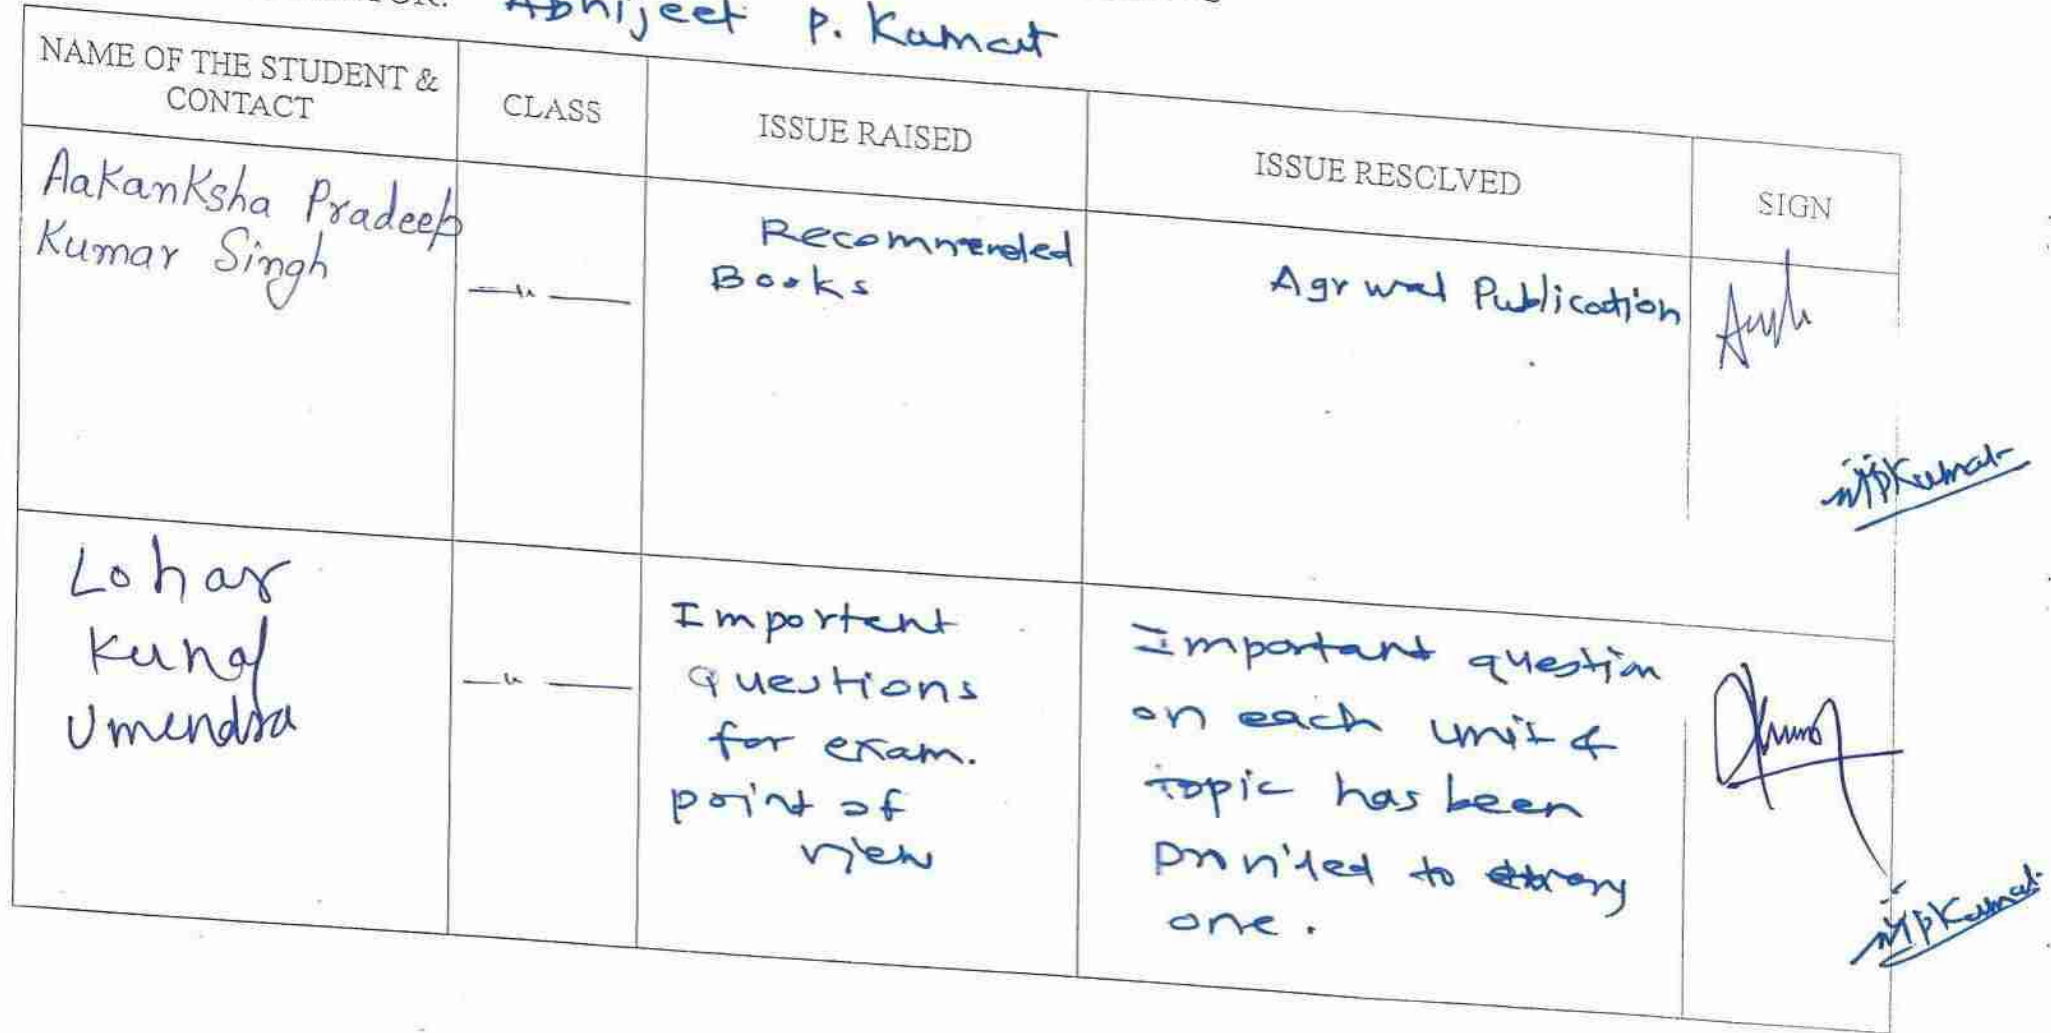 Abhijeet P. Kamat
NAME OF THE STUDENT &
CONTACT
CLASS
ISSUE RAISED
ISSUE RESOLVED
SIGN
Aakanksha Pradeep
Kumar Singh
—〃—
Recommended
Books
Agrwal Publication
Lohar
Kunal
Umendra
—〃—
Importent
Questions
for exam.
point of
view
Important question
on each unit &
topic has been
provided to every
one.